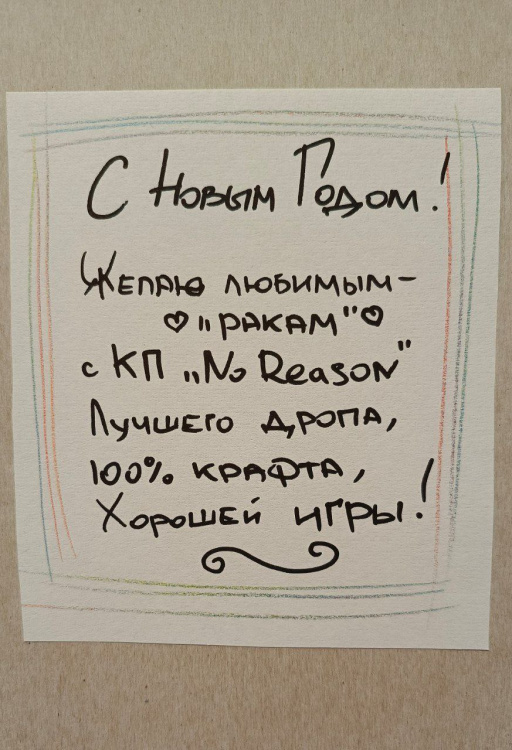 С Новым Годом!
Желаю любимым-
♡ „ракам" ♡
с КП „No Reason"
Лучшего дропа,
100% крафта,
Хорошей игры!